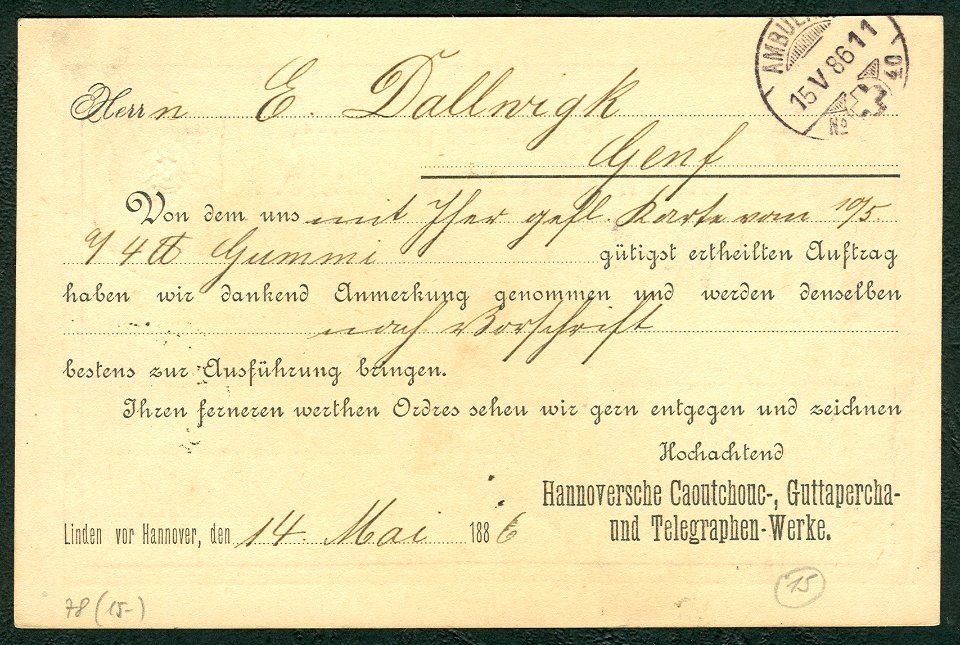 AMBULA
15 V 86 11
No 40
Herrn E. Dallwigk
Genf
Von dem uns mit Ihrer gefl. Karte vom 10/5.
a/ 4 ℔ Gummi gütigst ertheilten Auftrag
haben wir dankend Anmerkung genommen und werden denselben
nach Vorschrift
bestens zur Ausführung bringen.
Ihren ferneren werthen Ordres sehen wir gern entgegen und zeichnen
Hochachtend
Hannoversche Caoutchouc-, Guttapercha-
und Telegraphen-Werke.
Linden vor Hannover, den 14. Mai 1886
78 (15-)
15